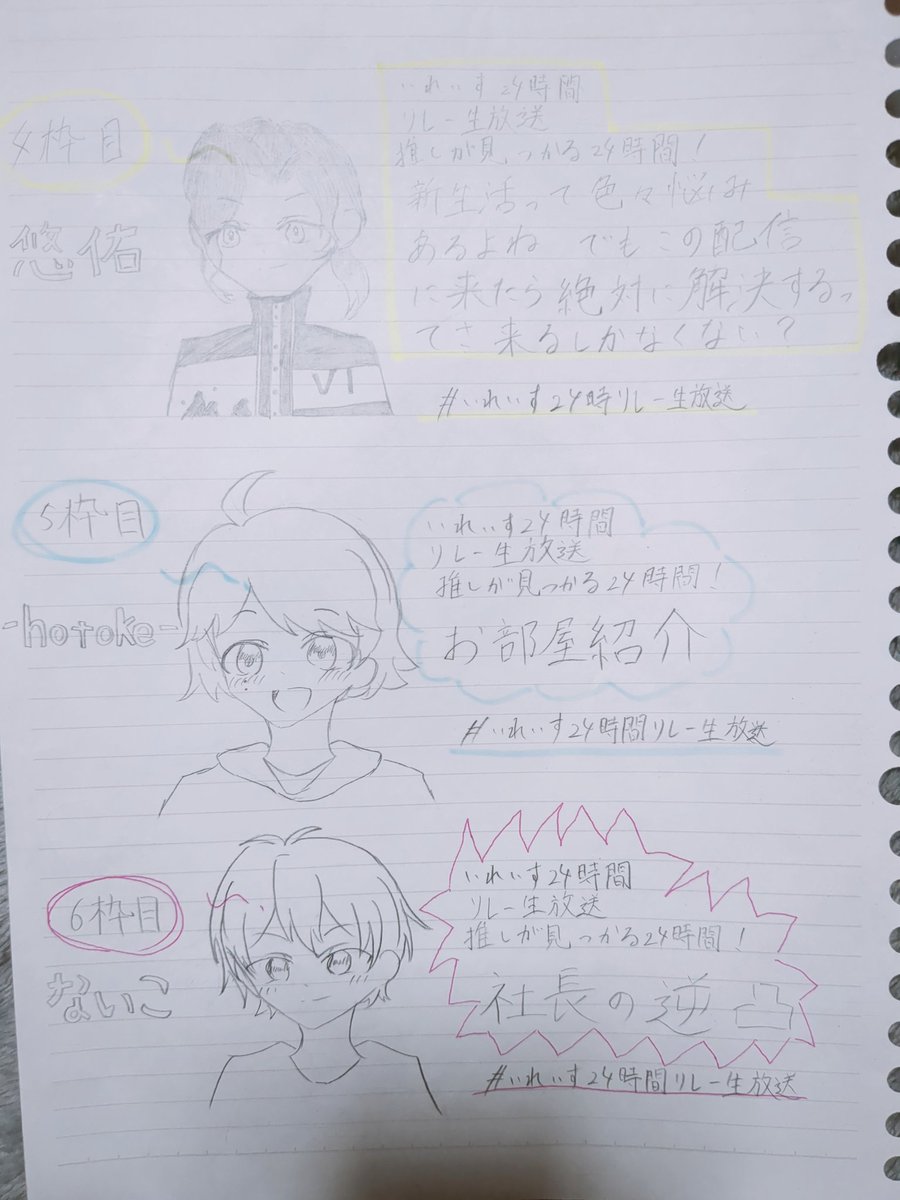 4枠目
悠佑
いれいす24時間
リレー生放送
推しが見つかる24時間！
新生活って色々悩み
あるよね でもこの配信
に来たら絶対に解決するっ
てさ 来るしかなくない？
#いれいす24時リレー生放送
VI
5枠目
-hotoke-
いれいす24時間
リレー生放送
推しが見つかる24時間！
お部屋紹介
#いれいす24時間リレー生放送
6枠目
ないこ
いれいす24時間
リレー生放送
推しが見つかる24時間！
社長の逆凸
#いれいす24時間リレー生放送